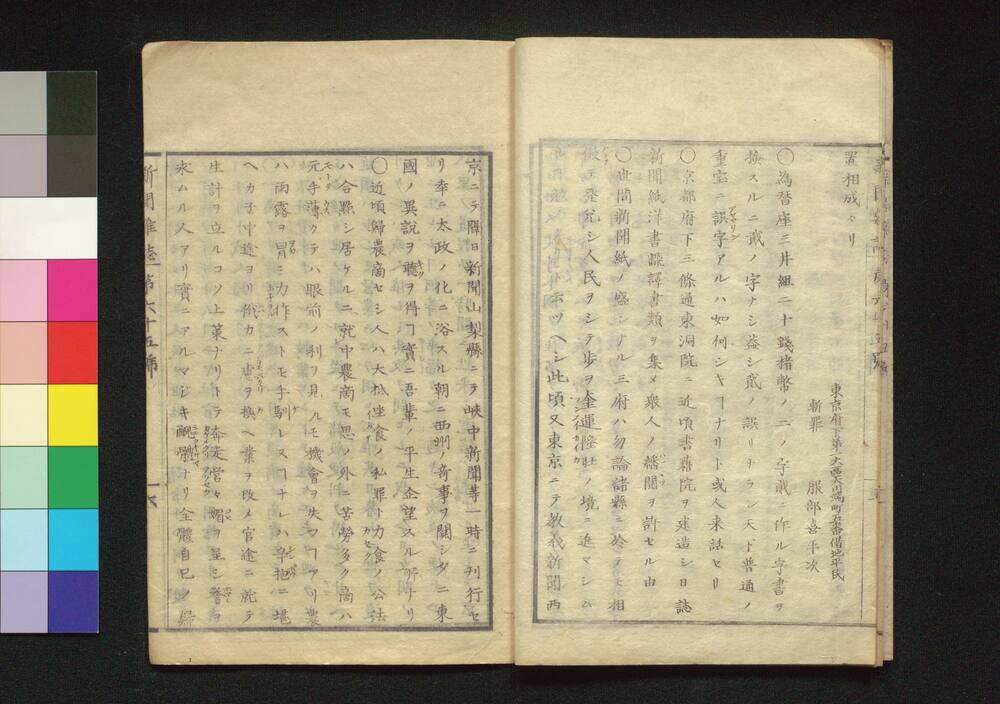 置相成タリ
東京府下第一大區大川端町五番借地平民
斬罪 服部喜平次
〇為替座三井組二十錢楮幣ノ二ノ字貮ニ作ル字書ヲ
按スルニ貮ノ字ナシ蓋シ貳ノ誤リナラン天下普通ノ
重宝ニ誤字アルハ如何シキヿナリト或人来話セリ
〇京都府下三條通東洞院ニ近頃書籍院ヲ建造シ日誌
新聞紙洋書飜譯書類ヲ集メ衆人ノ繙閲ヲ許セル由
〇世間新聞紙ノ盛ンナル三府ハ勿論諸縣ニ於テモ相
競テ發兌シ人民ヲシテ歩ヲ全運隆壮ノ境ニ進マシム
ヘシ此頃又東京ニテ教義新聞西
京ニテ隔日新聞山梨縣ニテ峡中新聞等一時ニ刊行セ
リ幸ニ太政ノ化ニ浴スル朝ニ西洲ノ奇事ヲ聞シタニ東
國ノ異説ヲ聴ヲ得ヿ實ニ吾輩ノ平生企望スル所ナリ
〇近頃歸農商セシ人ハ大抵坐食ノ私罪ト力食ノ公法
ハ合點シ居ケルニ就中農商モ思ノ外ニ苦勞多ク商ハ
元手薄クテハ眼前ノ利ヲ見ルモ機會ヲ失フヿアリ農
ハ雨露ヲ冒シ力作ストモ手馴レスヿナレハ辛抱ニ堪
ヘカ子中途ヨリ俄カニ志ヲ換ヘ業ヲ改メ官途ニ就テ
生計ヲ立ルコソ上策ナリトテ奔走営々媚ヲ呈シ誉ヲ
求ムル人アリ實ニアルマジキ醜體ナリ全體自己ノ歸
新聞雜誌 第六十五號 六